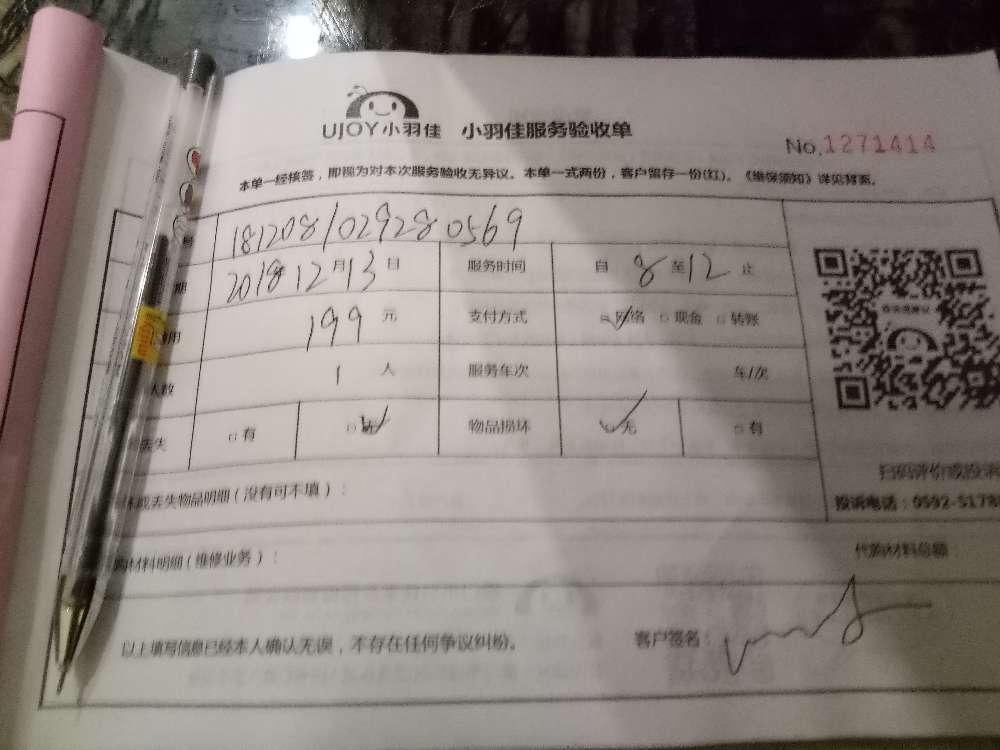 UJOY小羽佳 小羽佳服务验收单
No.1271414
本单一经核签，即视为对本次服务验收无异议。本单一式两份，客户留存一份(红)。《维保须知》详见背面。
号 181208102928 0569
期 2018年12月13日 服务时间 自 8 至 12 止
用 199 元 支付方式 网络 □现金 □转账
人数 1 人 服务车次 车/次
丢失 □有 □无 物品损坏 □无 □有
坏或丢失物品明细（没有可不填）：
扫码评价或投诉
投诉电话：0592-5178
购材料明细（维修业务）：
代购材料总额：
以上填写信息已经本人确认无误，不存在任何争议纠纷。 客户签名：